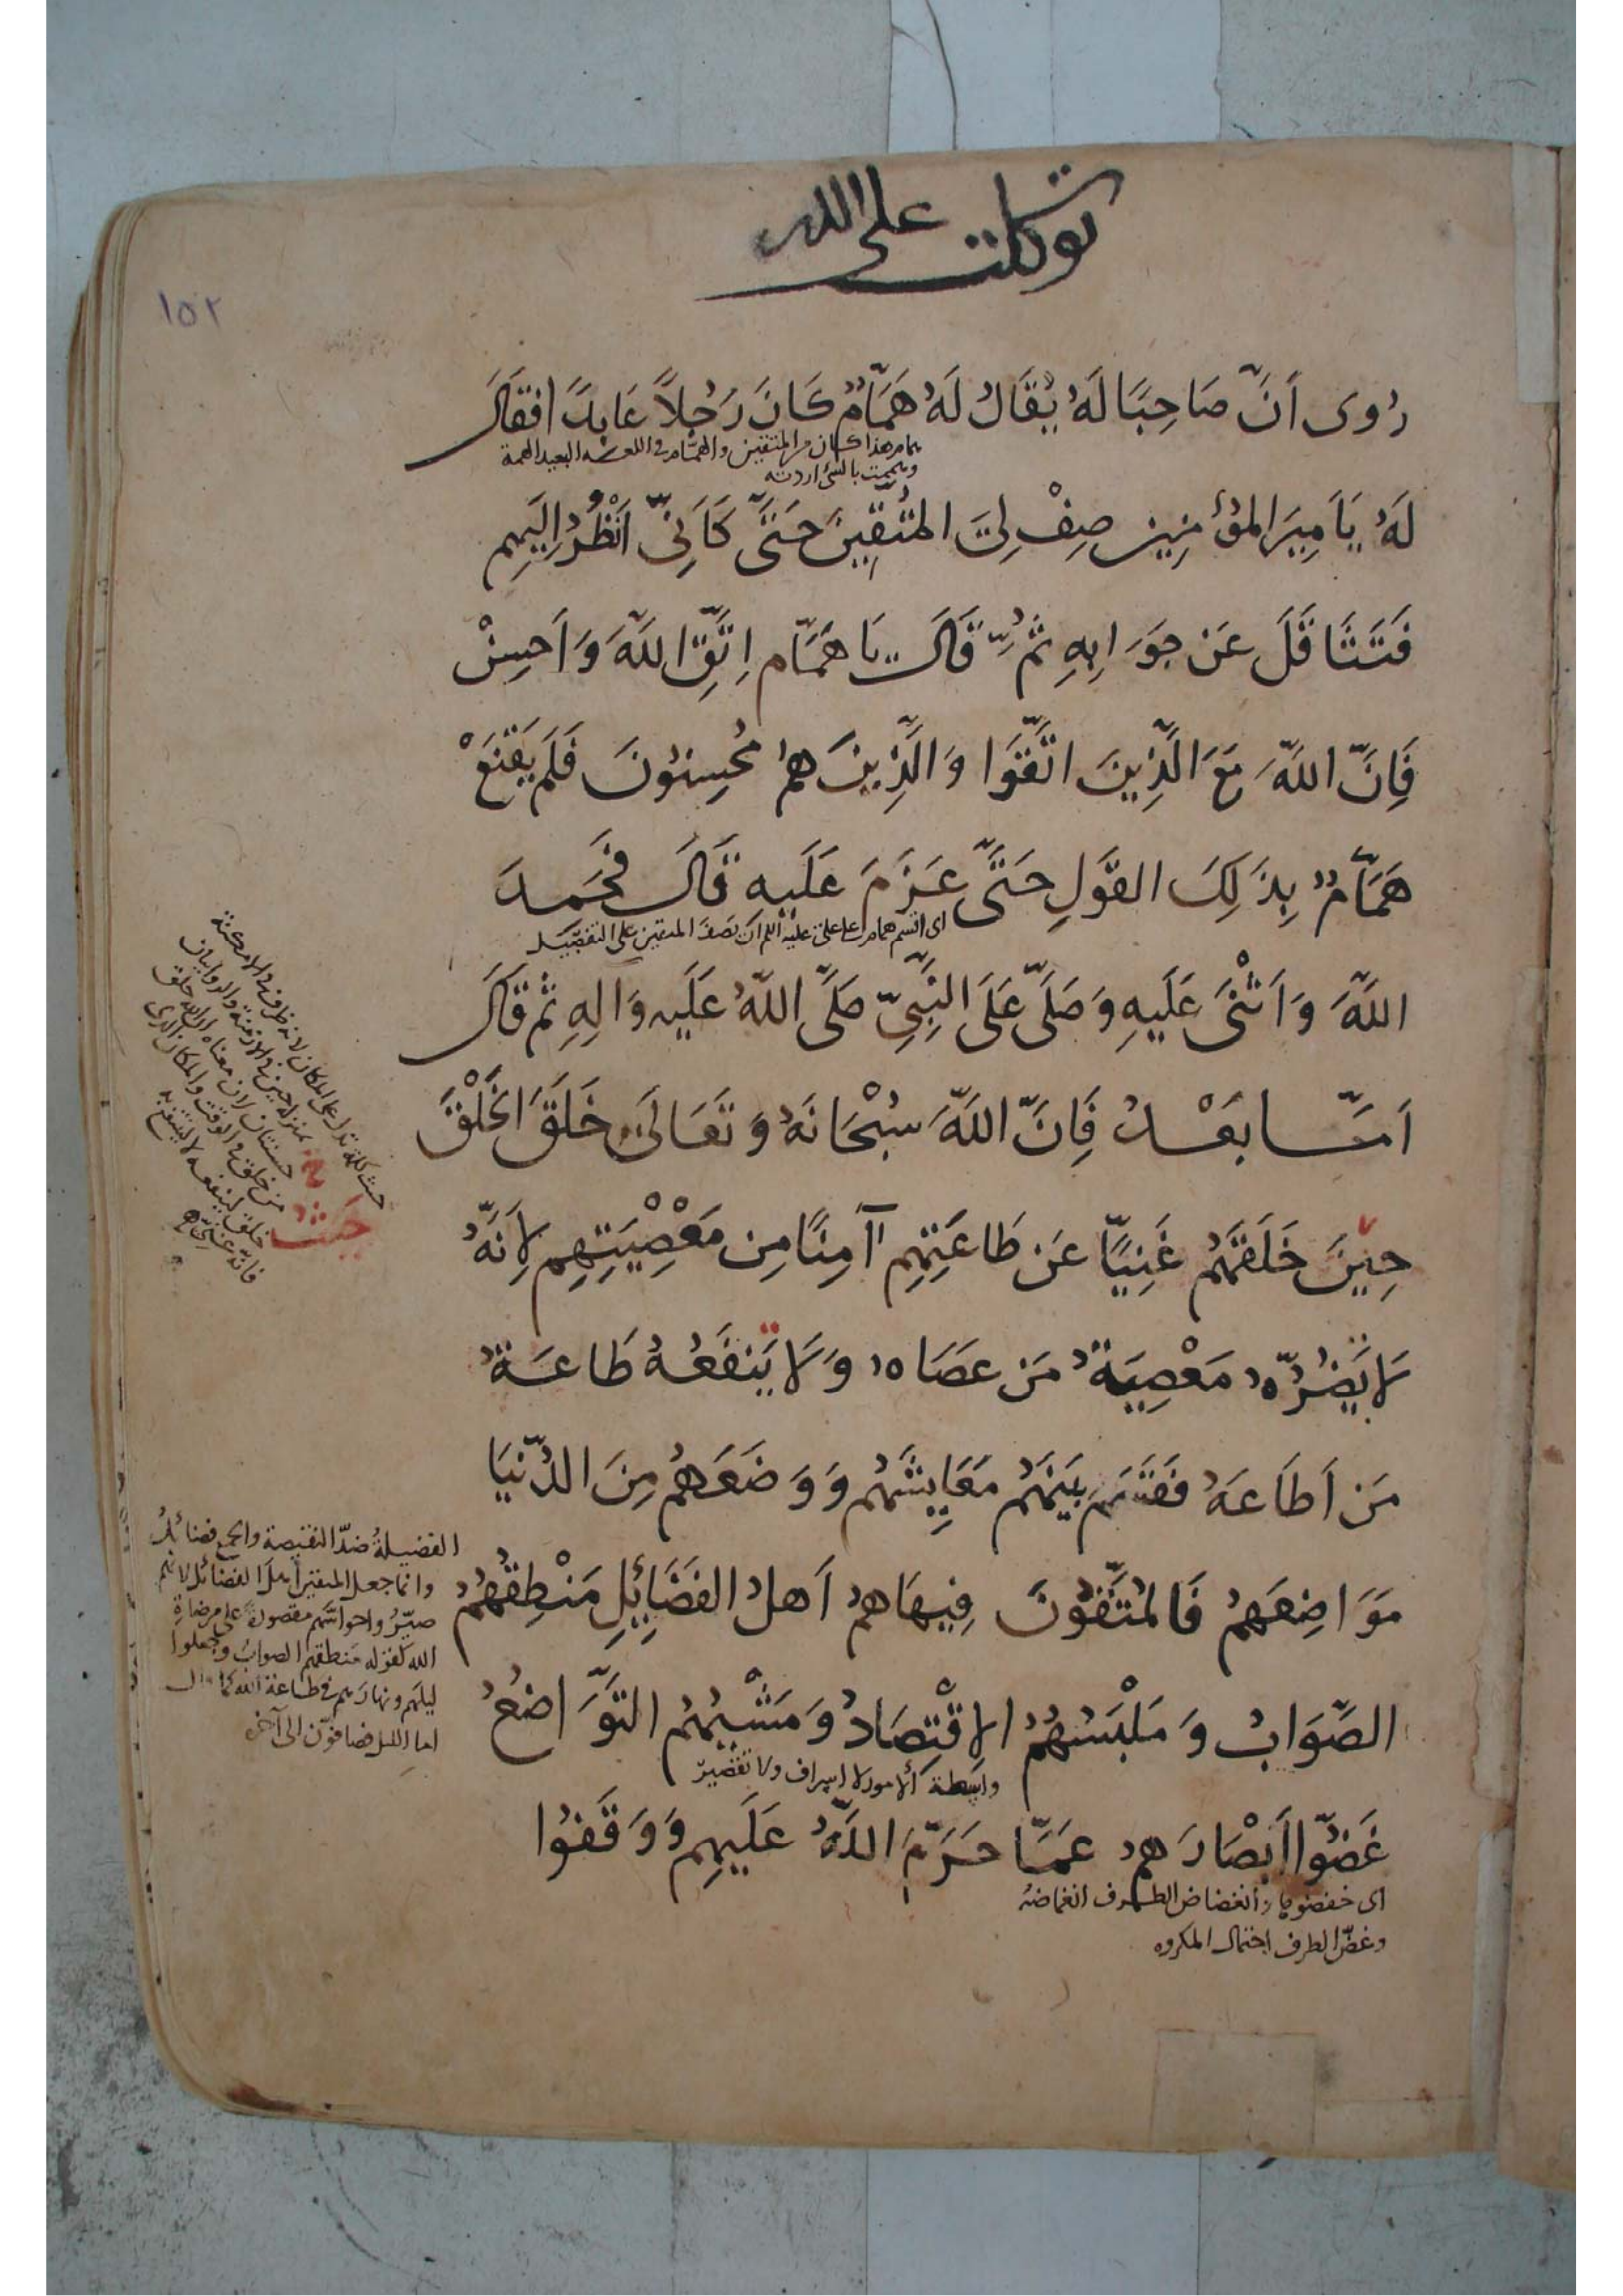 توكلت على الله
١٥٢
رُوِىَ اَنَّ صَاحِبًا لَهُ يُقَالُ لَهُ هَمَّامٌ كَانَ رَجُلاً عَابِدًا فَقَالَ
همام هذا كان من المتقين والهمام فى اللغه البعيد الهمة
وهممت بالشئ اردته
لَهُ يَا اَمِيرَ المُؤْمِنِينَ صِفْ لِىَ المُتَّقِينَ حَتَّى كَاَنِّى اَنْظُرُ اِلَيهِم
فَتَثَاقَلَ عَن جَوَابِهِ ثُمَّ قَالَ يَا هَمَّام اِتَّقِ اللّهَ وَاَحسِنْ
فَاِنَّ اللّهَ مَعَ الَّذِينَ اتَّقَوا وَالَّذِينَ هم مُحسِنُونَ فَلَم يَقْنَعْ
هَمَّامٌ بِذَلِكَ القَولِ حَتَّى عَزَمَ عَلَيهِ قَالَ فَحَمِدَ
اى اقسم همام على على عليه السلم ان يصف المتقين على التفصيل
اللّهَ وَاَثْنَى عَلَيهِ وَصَلَّى عَلَى النَّبِىِّ صَلَّى اللّهُ عَلَيه وَالِهِ ثم قَالَ
اَمَّا بَعْدُ فَاِنَّ اللّهَ سُبْحَانَهُ وَتَعَالَى خَلَقَ الخَلْقَ
حِينَ خَلَقَهُم غَنِيًّا عَن طَاعَتِهِم آمِنًا مِن مَعْصِيَتِهِم لِاَنَّهُ
لَا يَضُرُّهُ مَعْصِيَةُ مَن عَصَاهُ وَلَا يَنفَعُهُ طَاعَةُ
مَن اَطَاعَهُ فَقَسَمَ بَينَهُم مَعَايِشَهُم وَوَضَعَهُم مِنَ الدُّنيَا
مَوَاضِعَهُم فَالمُتَّقُونَ فِيهَا هم اَهلُ الفَضَائِلِ مَنْطِقُهُمُ
الصَّوَابُ وَمَلْبَسُهُمُ الاِقْتِصَادُ وَمَشْيُهُمُ التَّوَاضُعُ
واسطة الامور لا اسراف ولا تقصير
غَضُّوا اَبْصَارَهم عَمَّا حَرَّمَ اللّهُ عَلَيهِم وَوَقَفُوا
اى خفضوها وانغضاض الطرف انغماضه
وغضّ الطرف احتمال المكروه
حيث كلمة تدل على المكان لانه ظرف فى الامكنة
بمنزلة حين فى الازمنة والروايتان
حسنتان لان معناه ان الله خلق
من خلق فى الوقت والمكان الذى
خلق لينفعه لا لينتفع به
فانّه غنىّ
حَيثُ
خ
الفضيلةُ ضدّ النقيصة والجمع فضائلُ
وانما جعل المتقين اهل الفضائل لانهم
صيّروا حواسّهم مقصورة على مرضاة
الله كقوله منطقهم الصواب وجعلوا
ليلهم ونهارهم فى طاعة الله كما قال
اما الليل فصافّون الى آخره